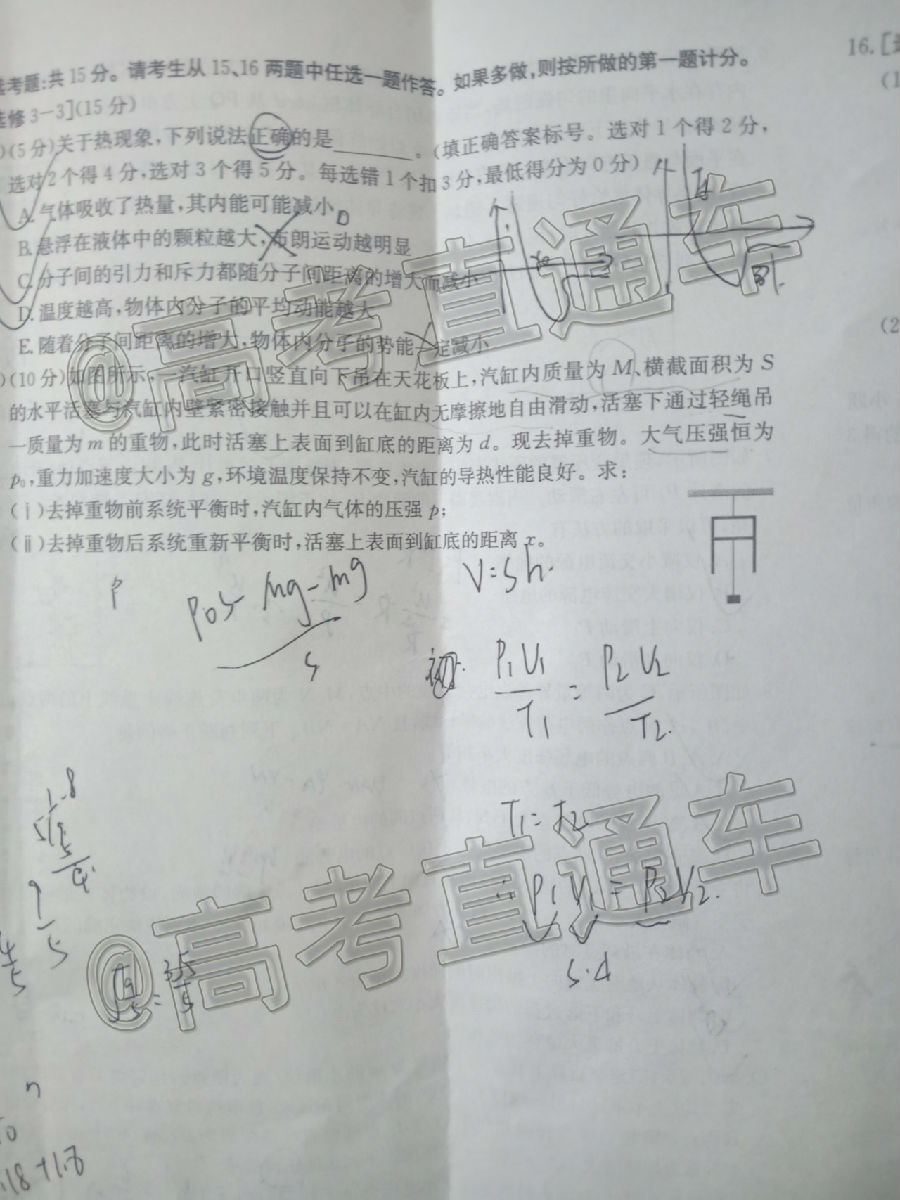 考题:共15分。请考生从15、16两题中任选一题作答。如果多做,则按所做的第一题计分。
修3-3](15分)
)(5分)关于热现象,下列说法正确的是________。(填正确答案标号。选对1个得2分,
选对2个得4分,选对3个得5分。每选错1个扣3分,最低得分为0分)
A.气体吸收了热量,其内能可能减小
B.悬浮在液体中的颗粒越大,布朗运动越明显
C.分子间的引力和斥力都随分子间距离的增大而减小
D.温度越高,物体内分子的平均动能越大
E.随着分子间距离的增大,物体内分子的势能一定减小
)(10分)如图所示,一汽缸开口竖直向下吊在天花板上,汽缸内质量为M、横截面积为S
的水平活塞与汽缸内壁紧密接触并且可以在缸内无摩擦地自由滑动,活塞下通过轻绳吊
一质量为m的重物,此时活塞上表面到缸底的距离为d。现去掉重物。大气压强恒为
p₀,重力加速度大小为g,环境温度保持不变,汽缸的导热性能良好。求:
(ⅰ)去掉重物前系统平衡时,汽缸内气体的压强p;
(ⅱ)去掉重物后系统重新平衡时,活塞上表面到缸底的距离x。
16.[
(1
(2
P
P0S-Mg-mg
S
V=Sh.
P1V1 = P2V2
T1 T2.
T1=T2
∴P1V1=P2V2.
S·d
@高考直通车
@高考直通车
n
.18+1.8